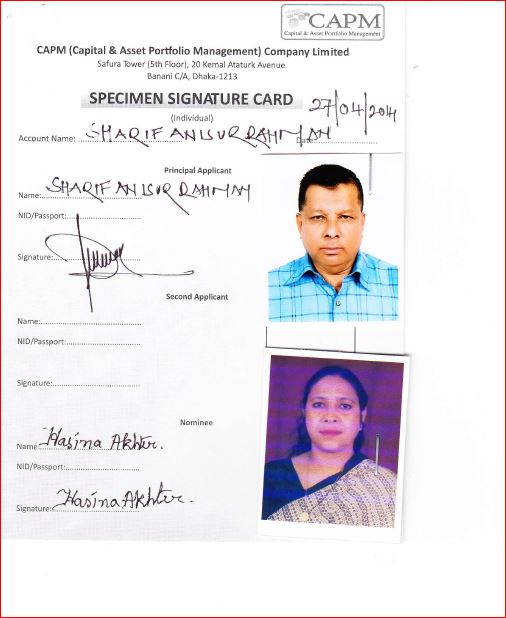 CAPM
Capital & Asset Portfolio Management
CAPM (Capital & Asset Portfolio Management) Company Limited
Safura Tower (5th Floor), 20 Kemal Ataturk Avenue
Banani C/A, Dhaka-1213
SPECIMEN SIGNATURE CARD
(Individual)
27/04/2011
Account Name: SHARIF ANISUR RAHMAN Date
Principal Applicant
Name: SHARIF ANISUR RAHMAN
NID/Passport:
Signature:
Second Applicant
Name:
NID/Passport:
Signature:
Nominee
Name: Hasina Akhter.
NID/Passport:
Signature: Hasina Akhter.